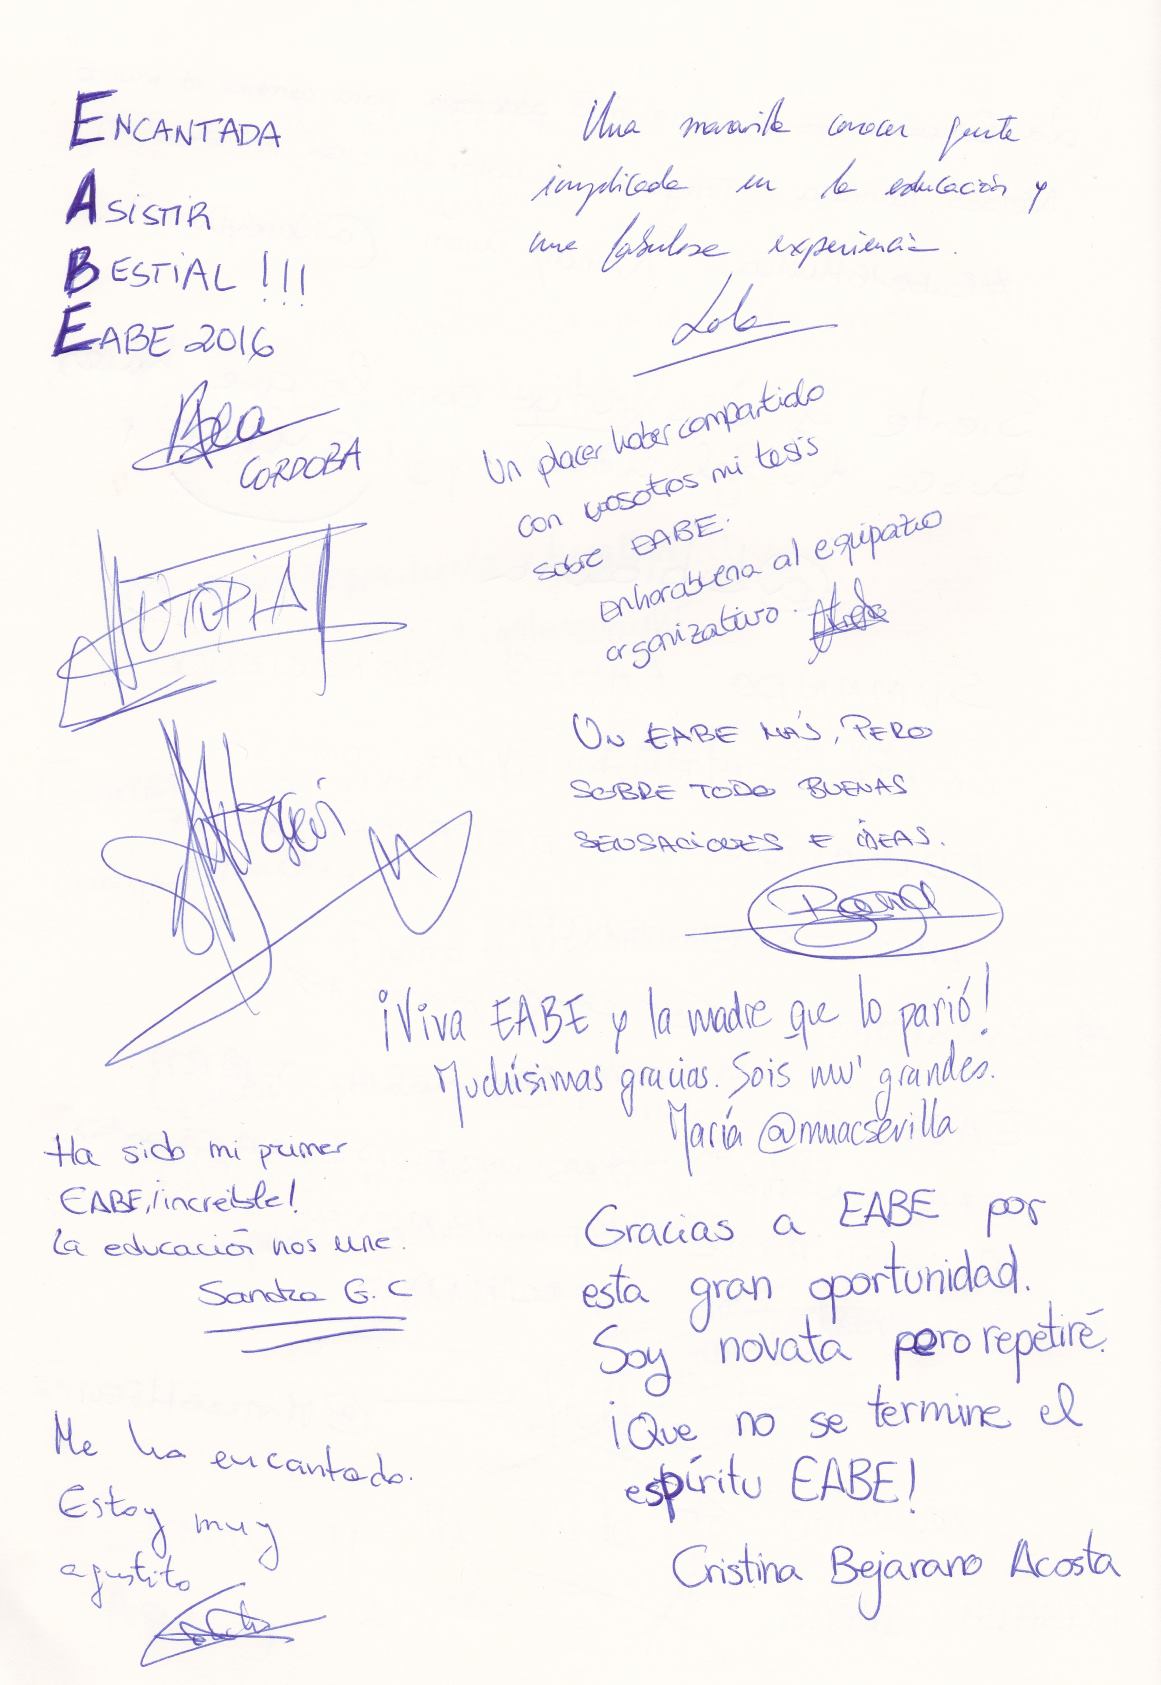 ENCANTADA
ASISTIR
BESTIAL !!!
EABE 2016
CORDOBA
UTOPIA
Una maravilla conocer gente
implicada en la educación y
una fabulosa experiencia.
Lola
Un placer haber compartido
con vosotros mi tesis
sobre EABE.
Enhorabuena al equipazo
organizativo.
UN EABE MÁS, PERO
SOBRE TODO BUENAS
SENSACIONES E IDEAS.
¡Viva EABE y la madre que lo parió!
Muchísimas gracias. Sois mu' grandes.
María @mmacsevilla
Ha sido mi primer
EABE, ¡increíble!
La educación nos une.
Sandra G. C
Gracias a EABE por
esta gran oportunidad.
Soy novata pero repetiré.
¡Que no se termine el
espíritu EABE!
Cristina Bejarano Acosta
Me ha encantado.
Estoy muy
agustito